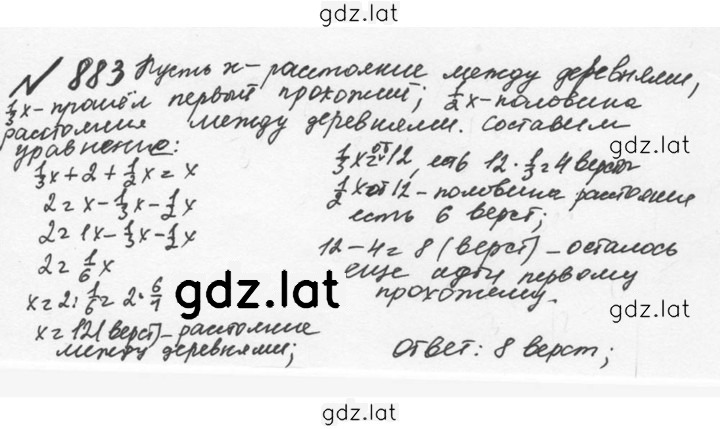 gdz.lat
№ 883 Пусть x - расстояние между деревнями,
1/3x - прошёл первый прохожий; 1/2x - половина
расстояния между деревнями. Составим
уравнение:
1/3x + 2 + 1/2x = x
2 = x - 1/3x - 1/2x
2 = 1x - 1/3x - 1/2x
2 = 1/6x
x = 2 : 1/6 = 2 · 6/1
x = 12 (верст) - расстояние
между деревнями;
1/3x от 12, есть 12 · 1/3 = 4 версты
1/2x от 12 - половина расстояния
есть 6 верст;
12 - 4 = 8 (верст) - осталось
еще идти первому
прохожему.
Ответ: 8 верст;
gdz.lat
gdz.lat
gdz.lat